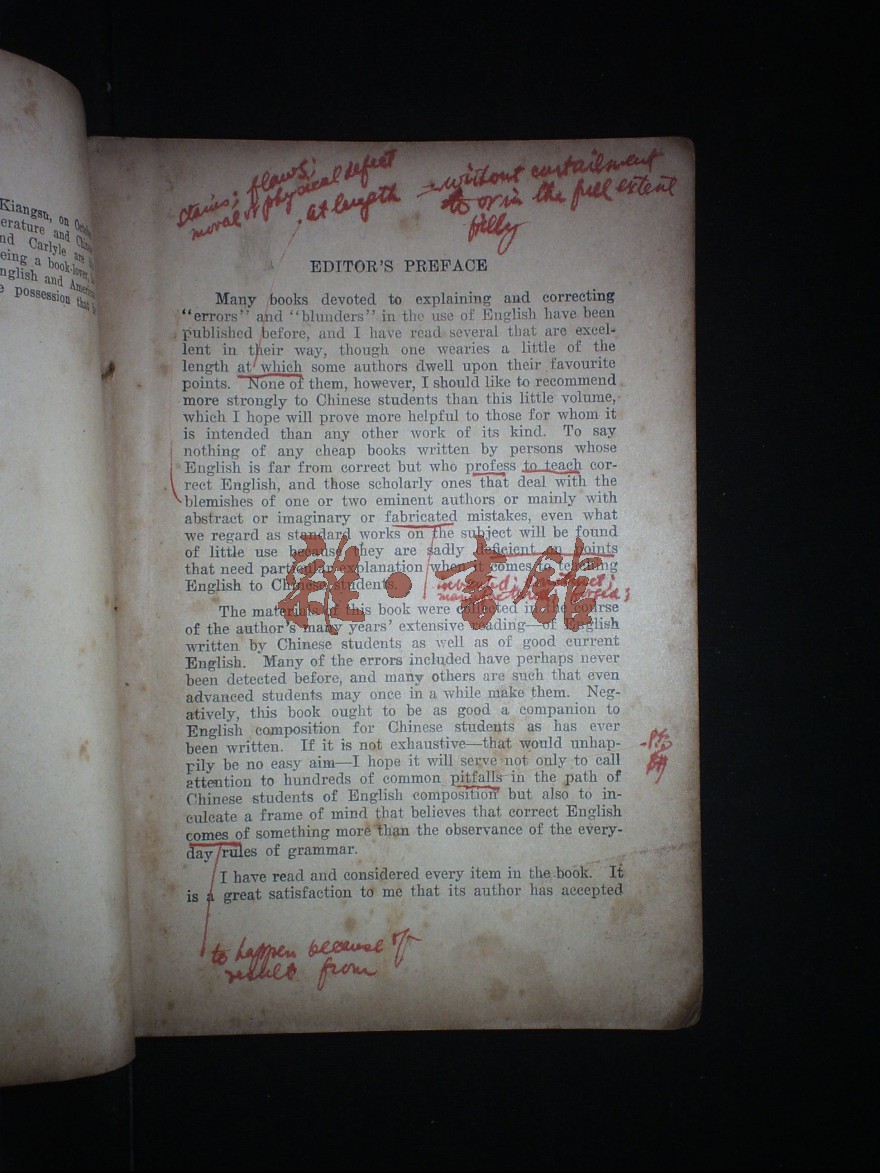 Kiangsu, on
erature and
nd Carlyle are
eing a book-lover,
nglish and
possession that
stains; flaws;
moral or physical defect
at length
= without curtailment
to or in the full extent
fully
EDITOR'S PREFACE
Many books devoted to explaining and correcting
"errors" and "blunders" in the use of English have been
published before, and I have read several that are excel-
lent in their way, though one wearies a little of the
length at which some authors dwell upon their favourite
points. None of them, however, I should like to recommend
more strongly to Chinese students than this little volume,
which I hope will prove more helpful to those for whom it
is intended than any other work of its kind. To say
nothing of any cheap books written by persons whose
English is far from correct but who profess to teach cor-
rect English, and those scholarly ones that deal with the
blemishes of one or two eminent authors or mainly with
abstract or imaginary or fabricated mistakes, even what
we regard as standard works on the subject will be found
of little use because they are sadly deficient on points
that need particular explanation when it comes to teaching
English to Chinese students.
invented; construct;
The materials of this book were collected in the course
of the author's many years' extensive reading—of English
written by Chinese students as well as of good current
English. Many of the errors included have perhaps never
been detected before, and many others are such that even
advanced students may once in a while make them. Neg-
atively, this book ought to be as good a companion to
English composition for Chinese students as has ever
been written. If it is not exhaustive—that would unhap-
pily be no easy aim—I hope it will serve not only to call
attention to hundreds of common pitfalls in the path of
Chinese students of English composition but also to in-
culcate a frame of mind that believes that correct English
comes of something more than the observance of the every-
day rules of grammar.
I have read and considered every item in the book. It
is a great satisfaction to me that its author has accepted
to happen because of
result from